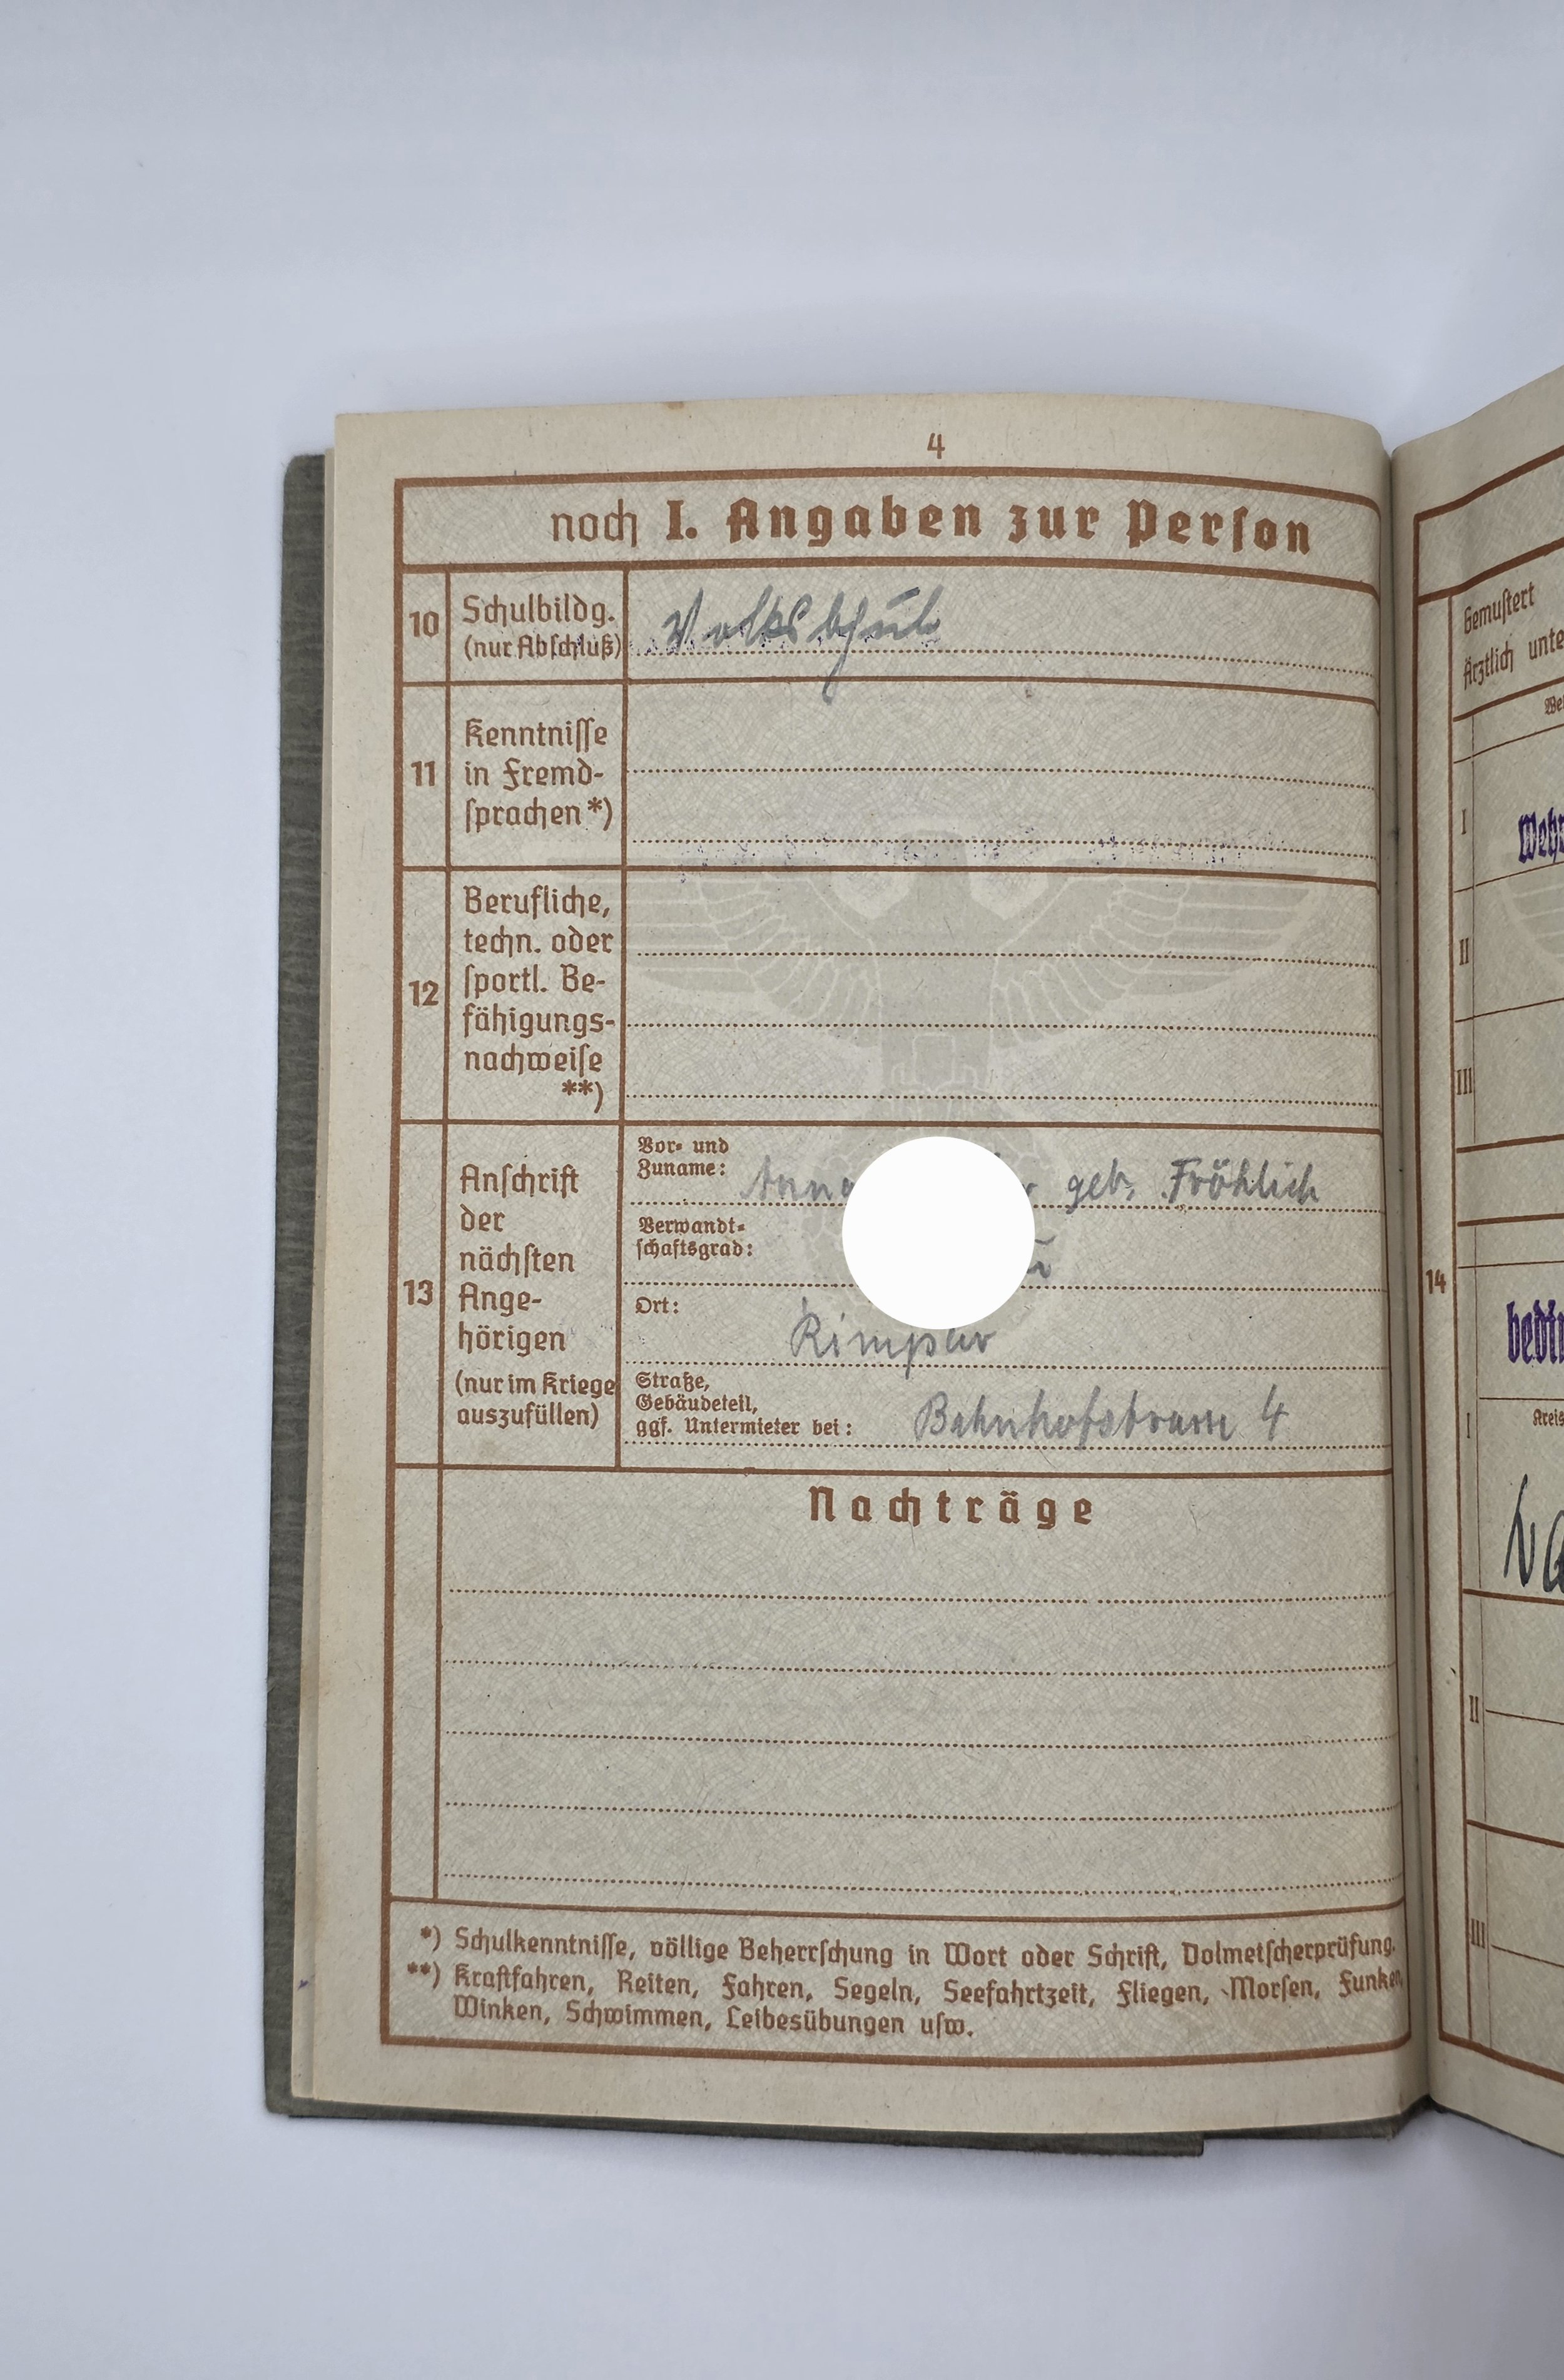 4
noch I. Angaben zur Person
10
Schulbildg.
(nur Abschluß)
Volksschule
11
Kenntnisse
in Fremd-
sprachen *)
12
Berufliche,
techn. oder
sportl. Be-
fähigungs-
nachweise
**)
13
Anschrift
der
nächsten
Ange-
hörigen
(nur im Kriege
auszufüllen)
Vor- und
Zuname:
geb. Fröhlich
Verwandt-
schaftsgrad:
Ort:
Rimpar
Straße,
Gebäudeteil,
ggf. Untermieter bei:
Bahnhofstrasse 4
Nachträge
*) Schulkenntnisse, völlige Beherrschung in Wort oder Schrift, Dolmetscherprüfung.
**) Kraftfahren, Reiten, Fahren, Segeln, Seefahrtzeit, Fliegen, Morsen, Funken,
Winken, Schwimmen, Leibesübungen usw.
Gemustert
Ärztlich
I
II
III
14
I
II
III